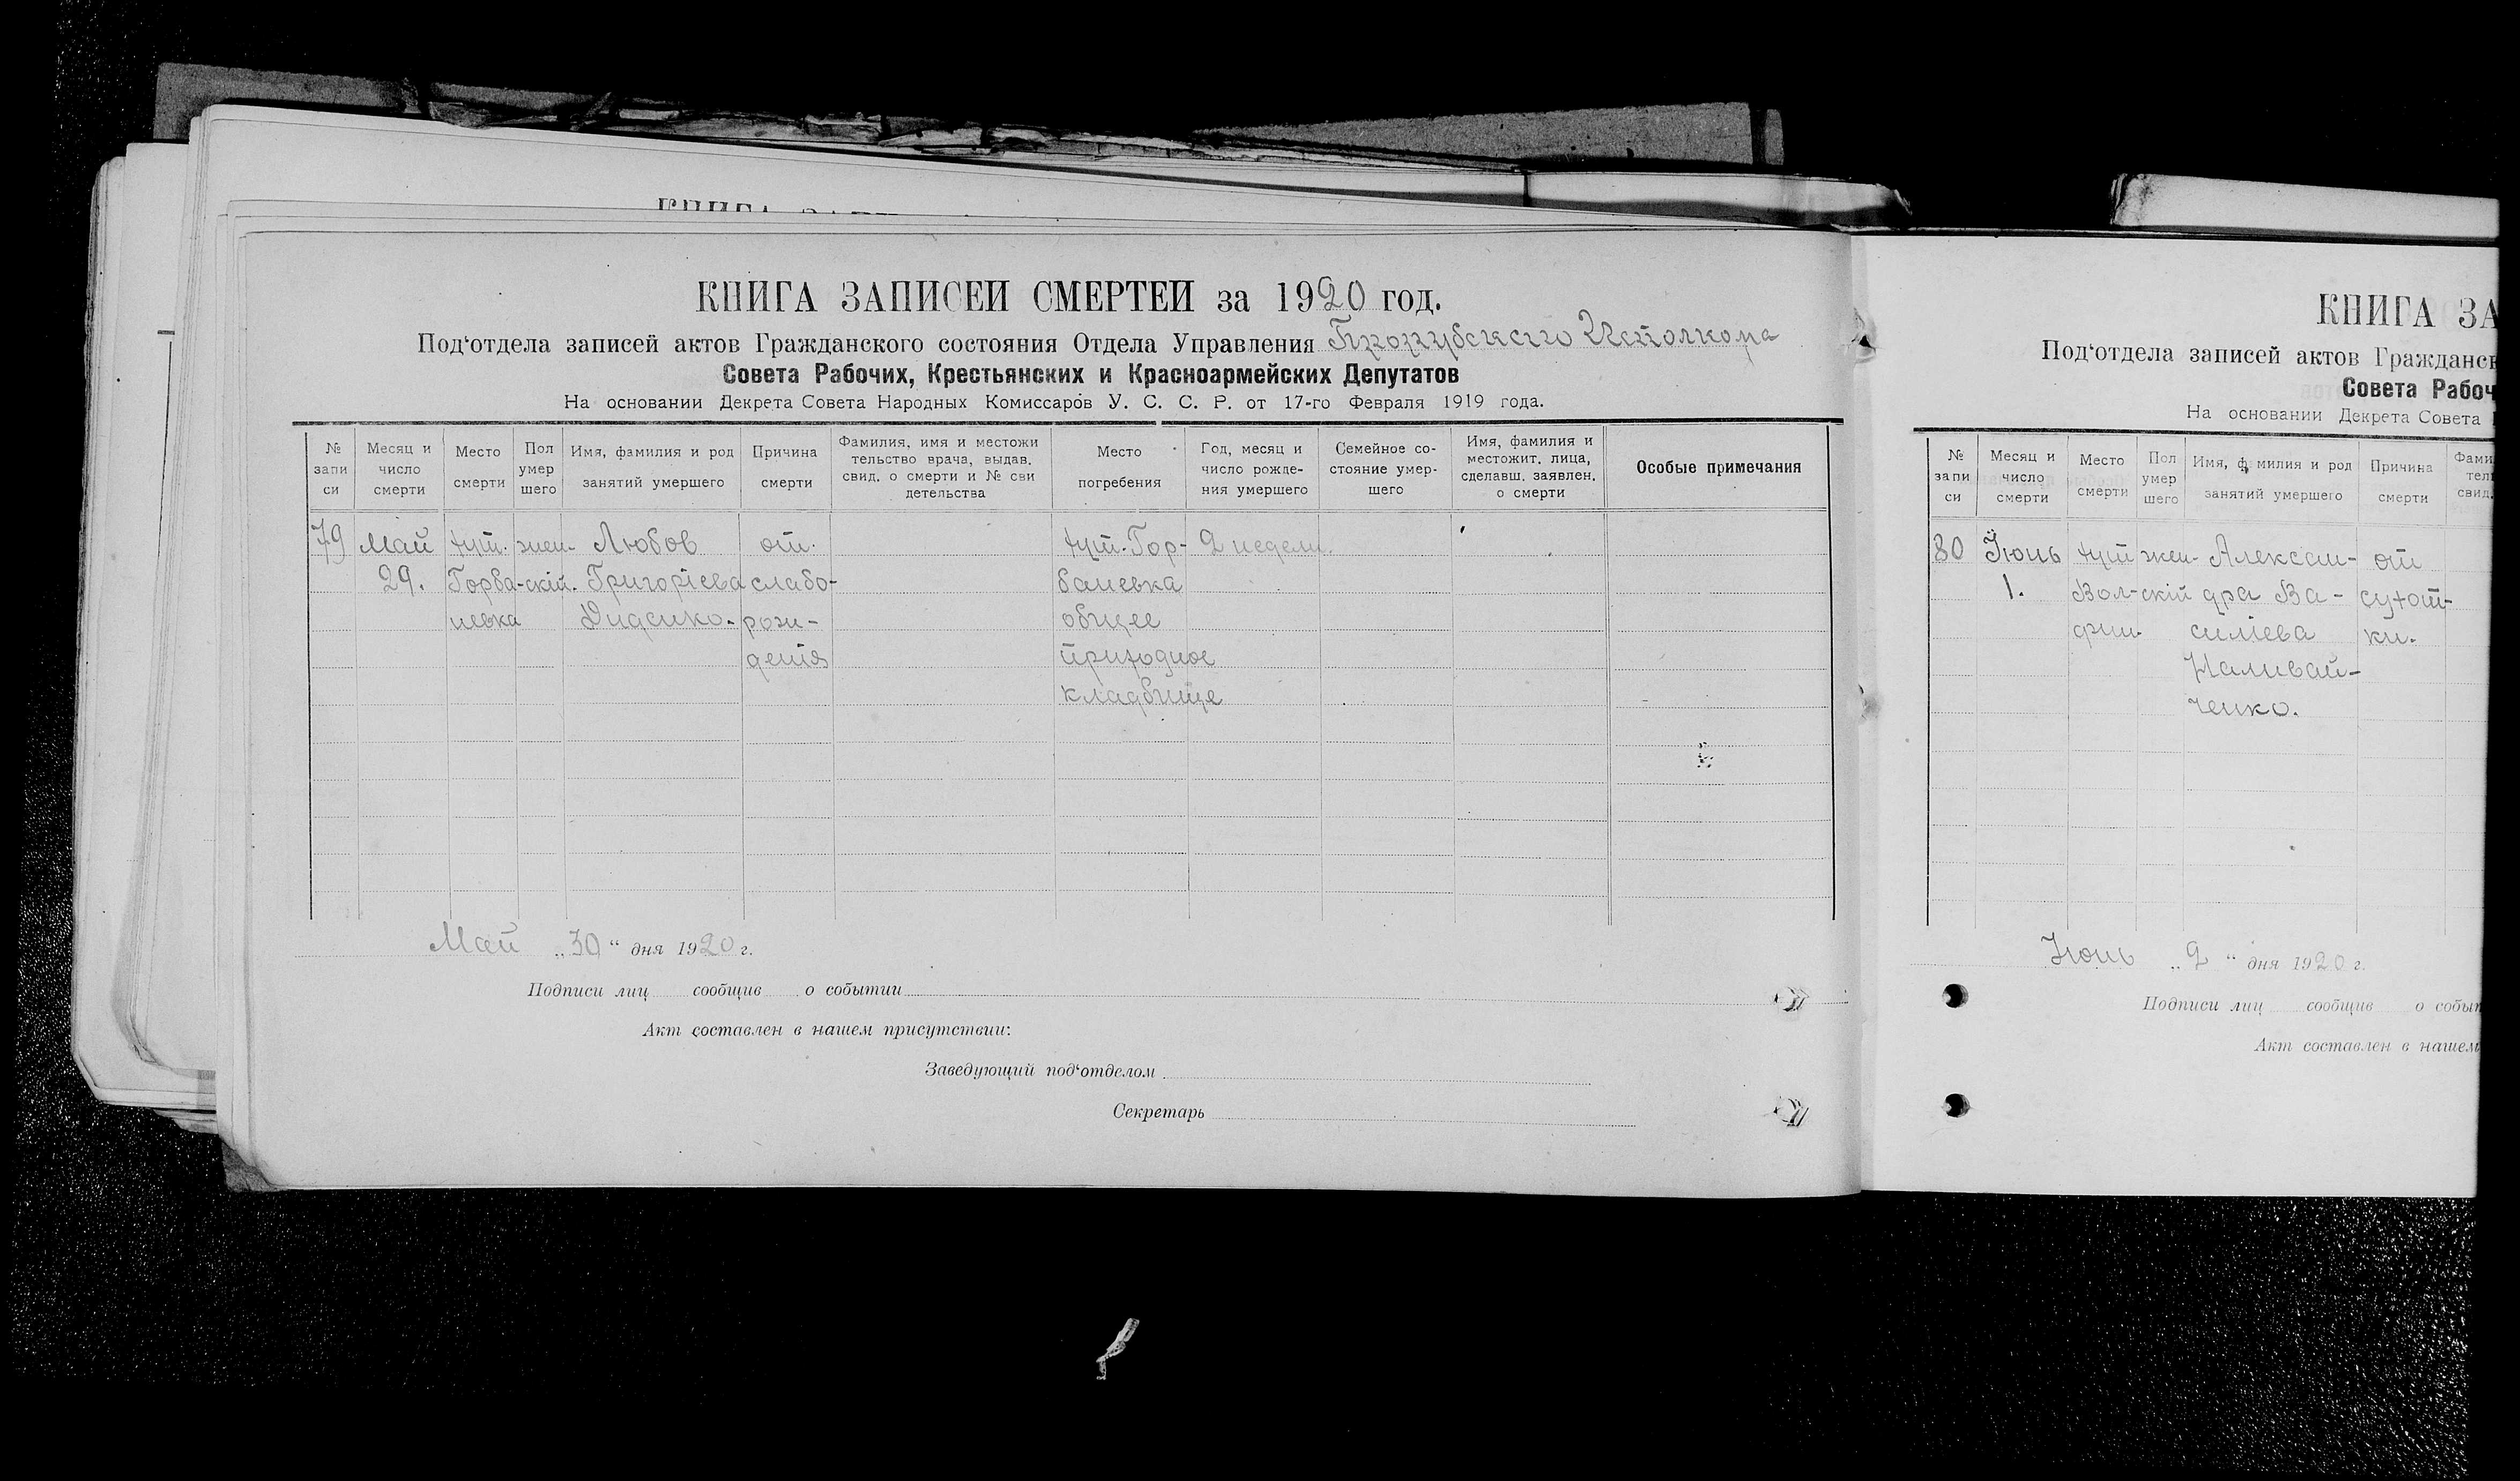 КНИГА ЗАПИСЕЙ СМЕРТЕЙ за 1920 год.
Под‘отдела записей актов Гражданского состояния Отдела Управления Исполкома
Совета Рабочих, Крестьянских и Красноармейских Депутатов
На основании Декрета Совета Народных Комиссаров У. С. С. Р. от 17-го Февраля 1919 года.
№ запи си
Месяц и число смерти
Место смерти
Пол умер шего
Имя, фамилия и род занятий умершего
Причина смерти
Фамилия, имя и местожи тельство врача, выдав. свид. о смерти и № сви детельства
Место погребения
Год, месяц и число рожде- ния умершего
Семейное со- стояние умер- шего
Имя, фамилия и местожит. лица, сделавш. заявлен. о смерти
Особые примечания
79 Май хут. жен- Любов от. хут. Гор- 2 недели.
29. Горба- скій. Григоріева слабо- баневка
невка Диденко. рож- общее
денія приходное
кладбище
Май „30“ дня 1920 г.
Подписи лиц сообщив о событии
Акт составлен в нашем присутствии:
Заведующий под‘отделом
Секретарь
КНИГА ЗА
Под‘отдела записей актов Гражданск
Совета Рабоч
На основании Декрета Совета
№ запи си
Месяц и число смерти
Место смерти
Пол умер шего
Имя, фамилия и род занятий умершего
Причина смерти
Фами тел свид.
80 Іюнь хут жен- Алексан- от
1. Вол- скій дра Ва- сухот-
силіева ки.
Наливай-
ченко.
Іюнь „2“ дня 1920 г.
Подписи лиц сообщив о событ
Акт составлен в нашем